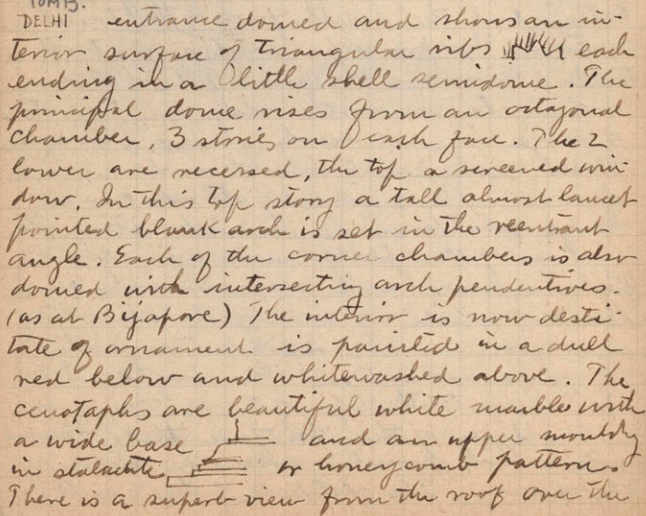 TOMB.
DELHI entrance domed and shows an in-
terior surface of triangular ribs each
ending in a little shell semidome. The
principal dome rises from an octagonal
chamber, 3 stories on each face. The 2
lower are recessed, the top a screened win-
dow. In this top story a tall almost lancet
pointed blank arch is set in the reentrant
angle. Each of the corner chambers is also
domed with intersecting arch pendentives.
(as at Bijapore) The interior is now desti-
tute of ornament is painted in a dull
red below and whitewashed above. The
cenotaphs are beautiful white marble with
a wide base and an upper moulding
in stalactite or honeycomb pattern.
There is a superb view from the roof over the